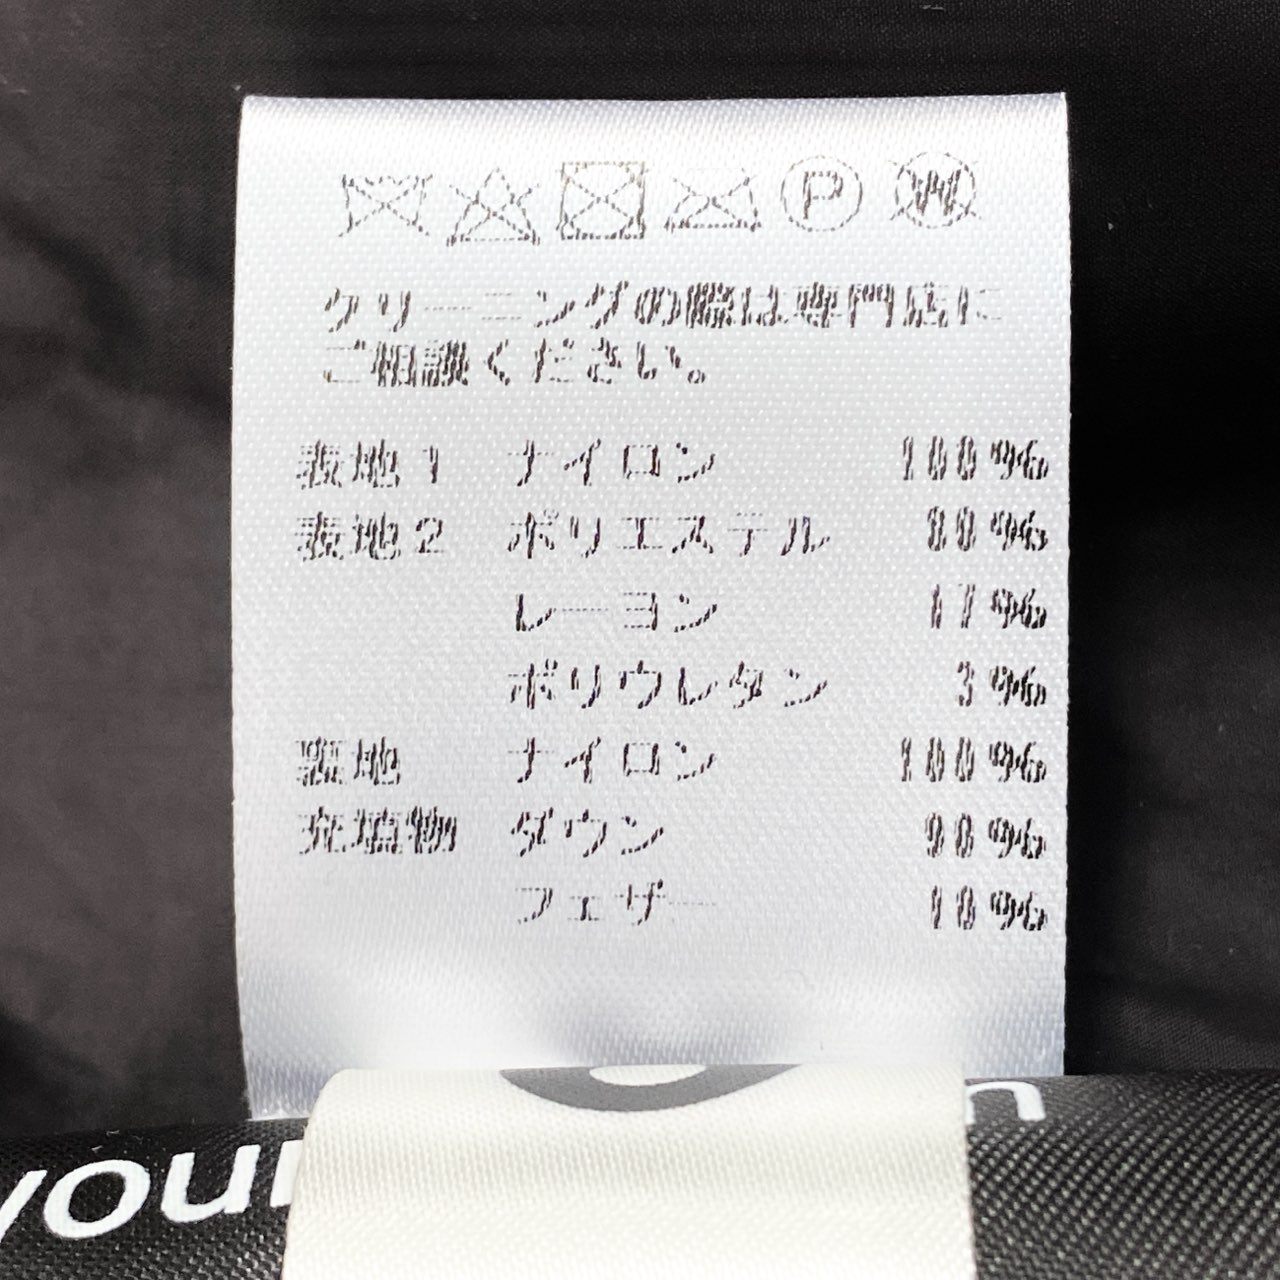 P W
クリーニングの際は専門店に
ご相談ください。
表地1 ナイロン 100%
表地2 ポリエステル 80%
レーヨン 17%
ポリウレタン 3%
裏地 ナイロン 100%
充填物 ダウン 90%
フェザー 10%